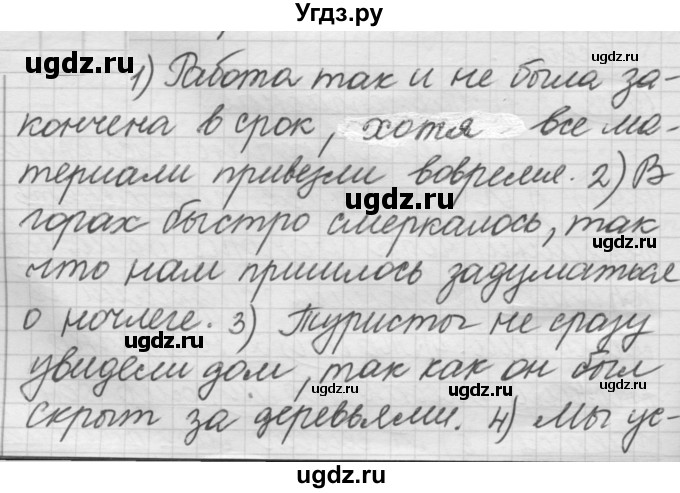 Угдз.ру
ugdz.ru
ugdz.ru
1) Работа так и не была за-
кончена в срок, хотя все ма-
териали привезли вовремя. 2) В
ugdz.ru
ugdz.ru
горах быстро смеркалось, так
ugdz.ru
что нам пришлось задуматься
о ночлеге. 3) Туристы не сразу
ugdz.ru
увидели дом, так как он был
ugdz.ru
ugdz.ru
скрыт за деревьями. 4) Мы ус-
ugdz.ru
ugdz.ru